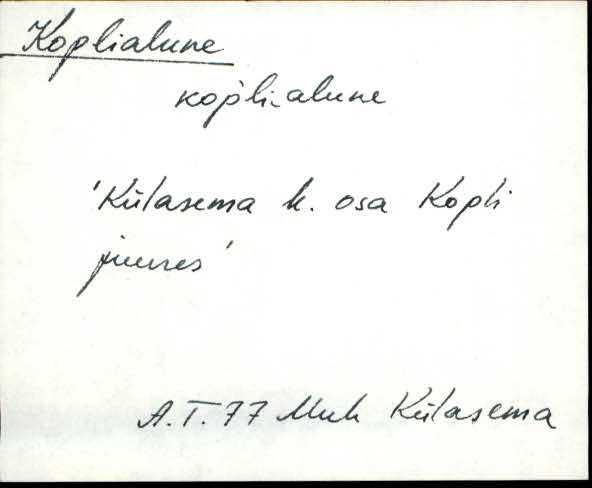 Koplialune
kop̀li-alune
'Külasema k. osa Kopli
juures'
A.T. 77 Muh Külasema